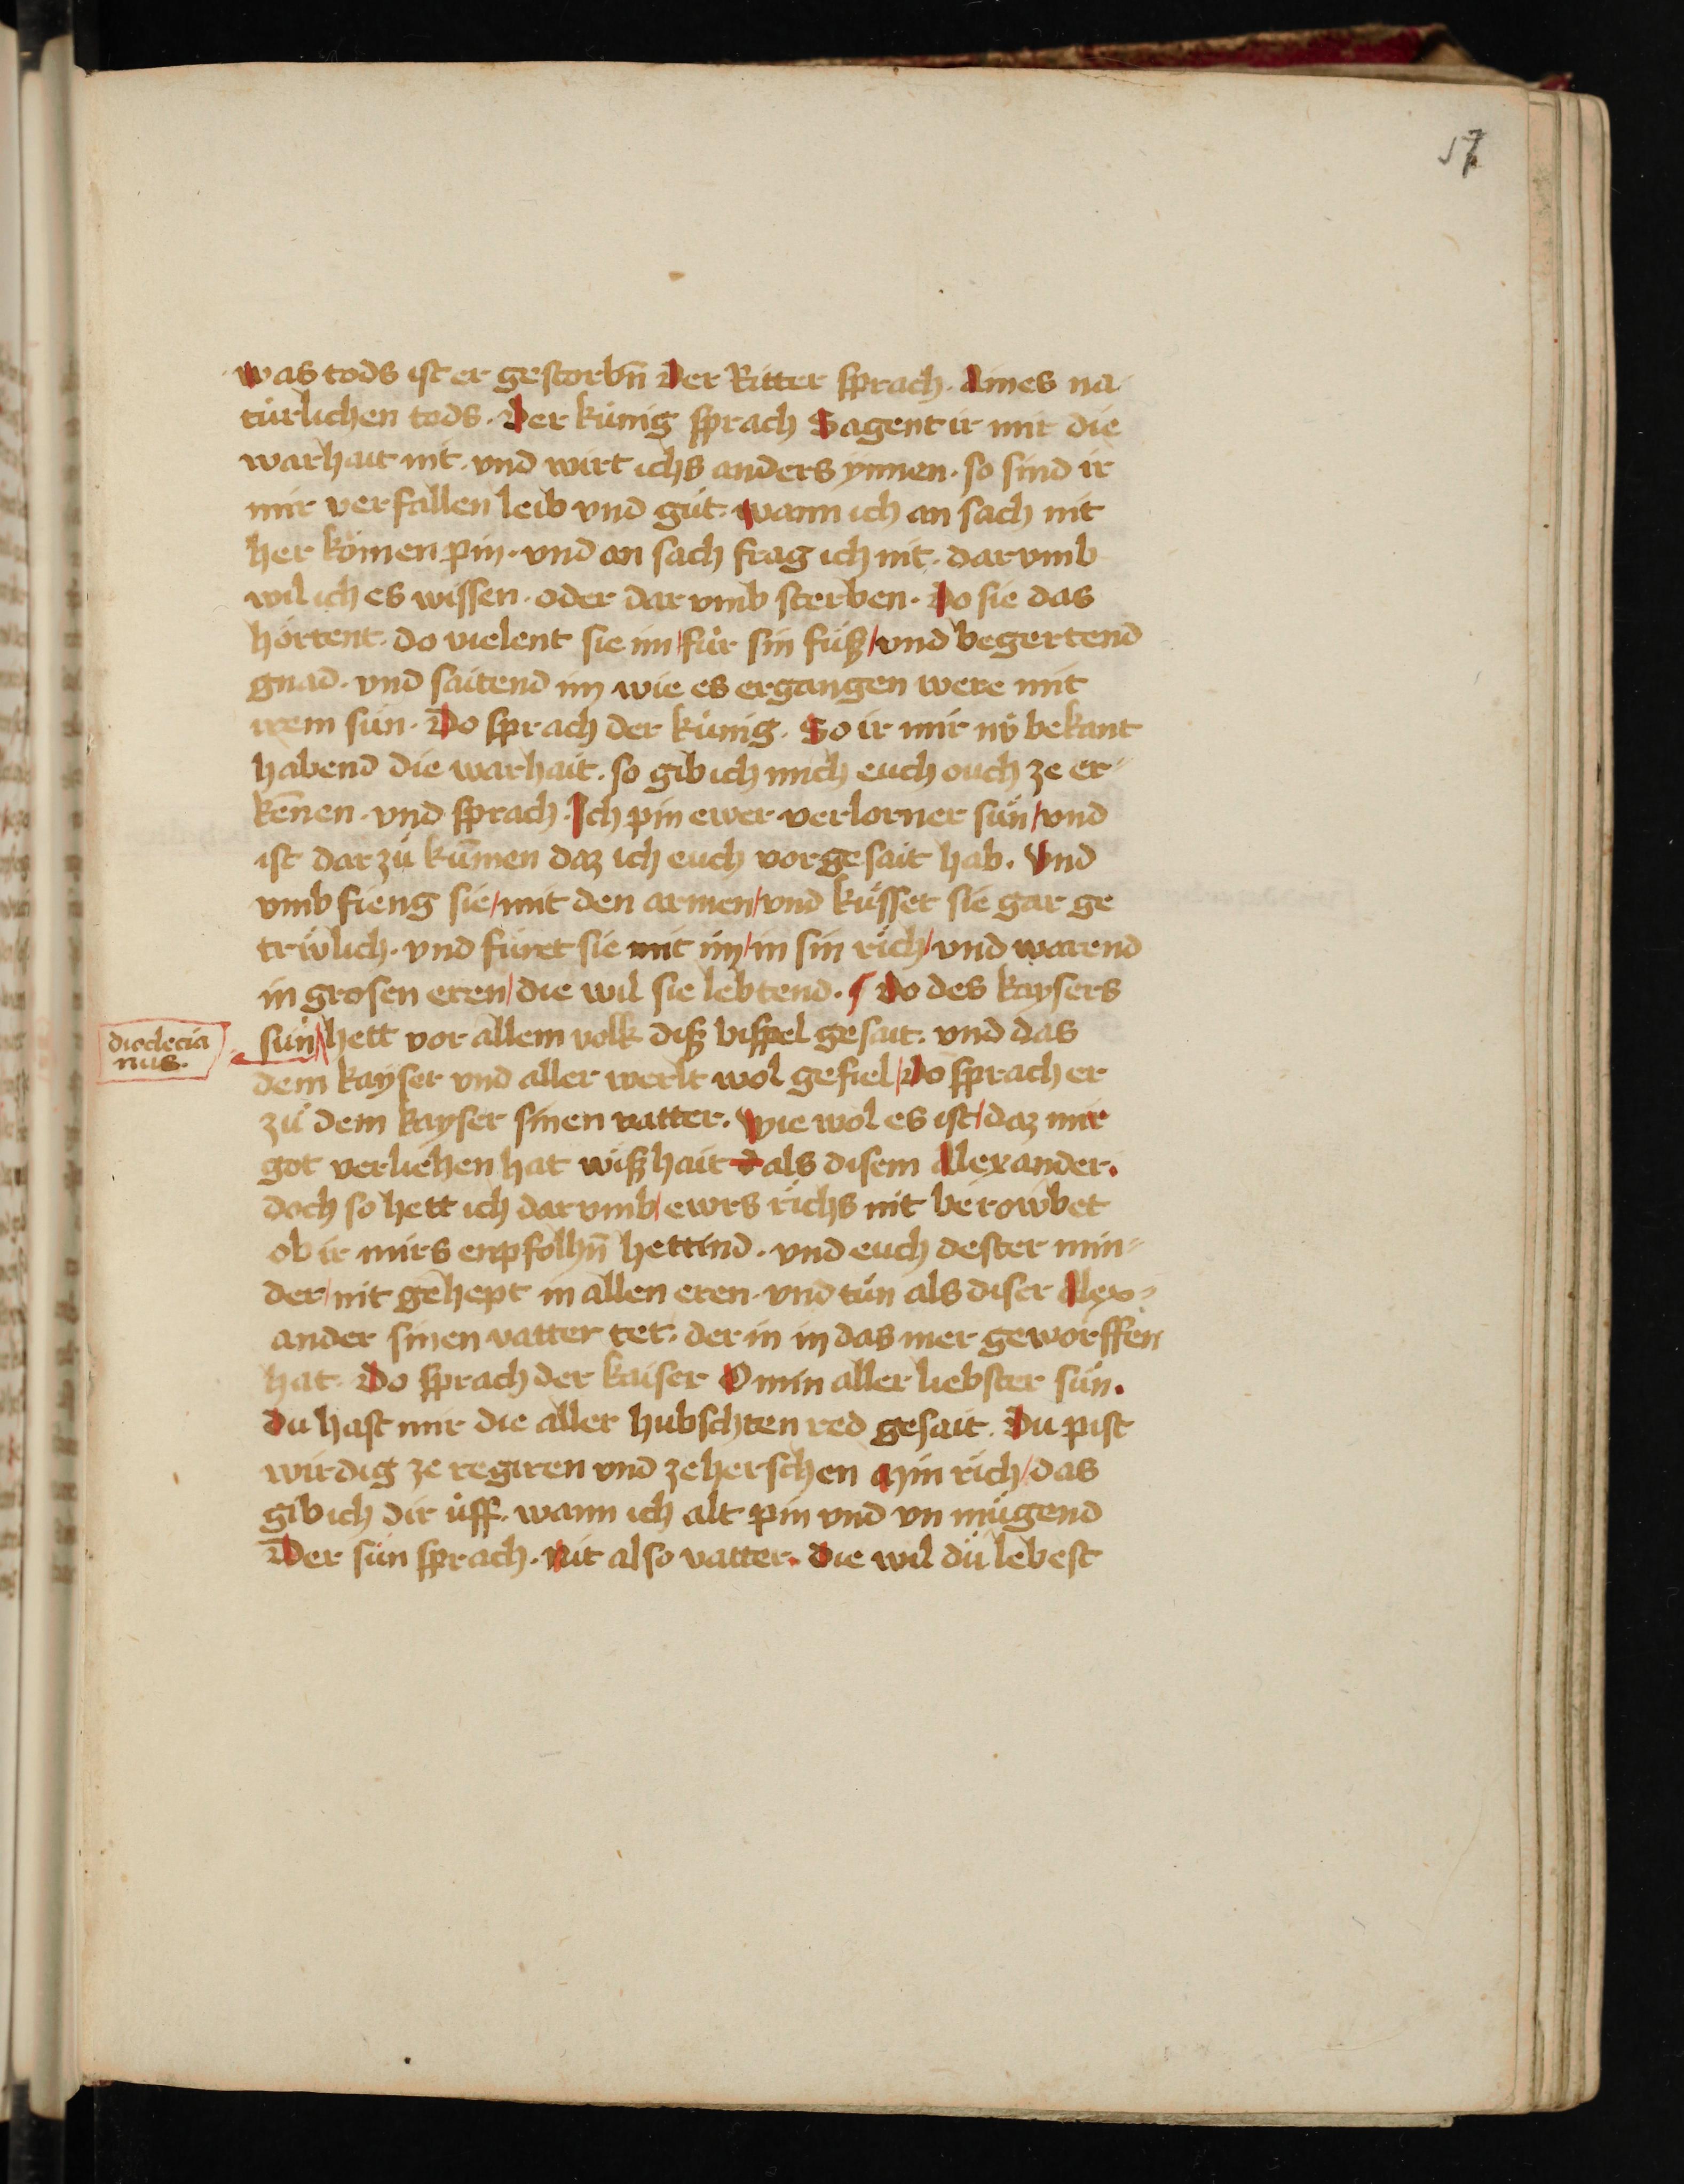 57
was tods ist er gestorbn̄ Der Ritter sprach. Aines na
türlichen tods. Der künig sprach Sagent ir mir die
warhait nit. vnd wirt ichs anders ynnen. so sind ir
mir verfallen leib vnd güt. wann ich an sach nit
her kömen pin. vnd an sach frag ich nit. dar vmb
wil ich es wissen. oder dar vmb sterben. Do sie das
hörtent. do vielent sie im/für sin füß/vnd begertend
gnad. vnd saitend im wie es ergangen were mit
irem sün. Do sprach der künig. So ir mir nv̈ bekant
habend die warhait. so gib ich mich euch ouch ze er⸗
kēnen. vnd sprach. Ich pin ewer verlorner sün/vnd
ist dar zü kūmen daz ich euch vor gesait hab. Vnd
vmb fieng sie/mit den armen/vnd küsset sie gar ge
trẅlich. vnd füret sie mit im/in sin rich/vnd warend
in grosen eren/die wil sie lebtend. Do des kaysers
diodecia
nus.
sün hett vor allem volk diß bispel gesait. vnd das
dem kayser vnd aller werlt wol gefiel/Do sprach er
zü dem kayser sinen vatter. Wie wol es ist/daz mir
got verliehen hat wißhait d als disem Allexander.
doch so hett ich dar vmb/ewrs richs nit berowbet
ob ir mirs enpfolhn̄ hettind. vnd euch dester min⸗
der/nit gehept in allen eren. vnd tün als diser Allex⸗
ander sinen vatter tet. der in in das mer geworffen
hat. Do sprach der kaiser O min aller liebster sün.
Du hast mir die aller hubschten red gesait. Du pist
wirdig ze regiren vnd ze herschen Min rich/das
gib ich dir uff. wann ich alt pin vnd vn mügend
Der sün sprach. Nit also vatter. Die wil dü lebest